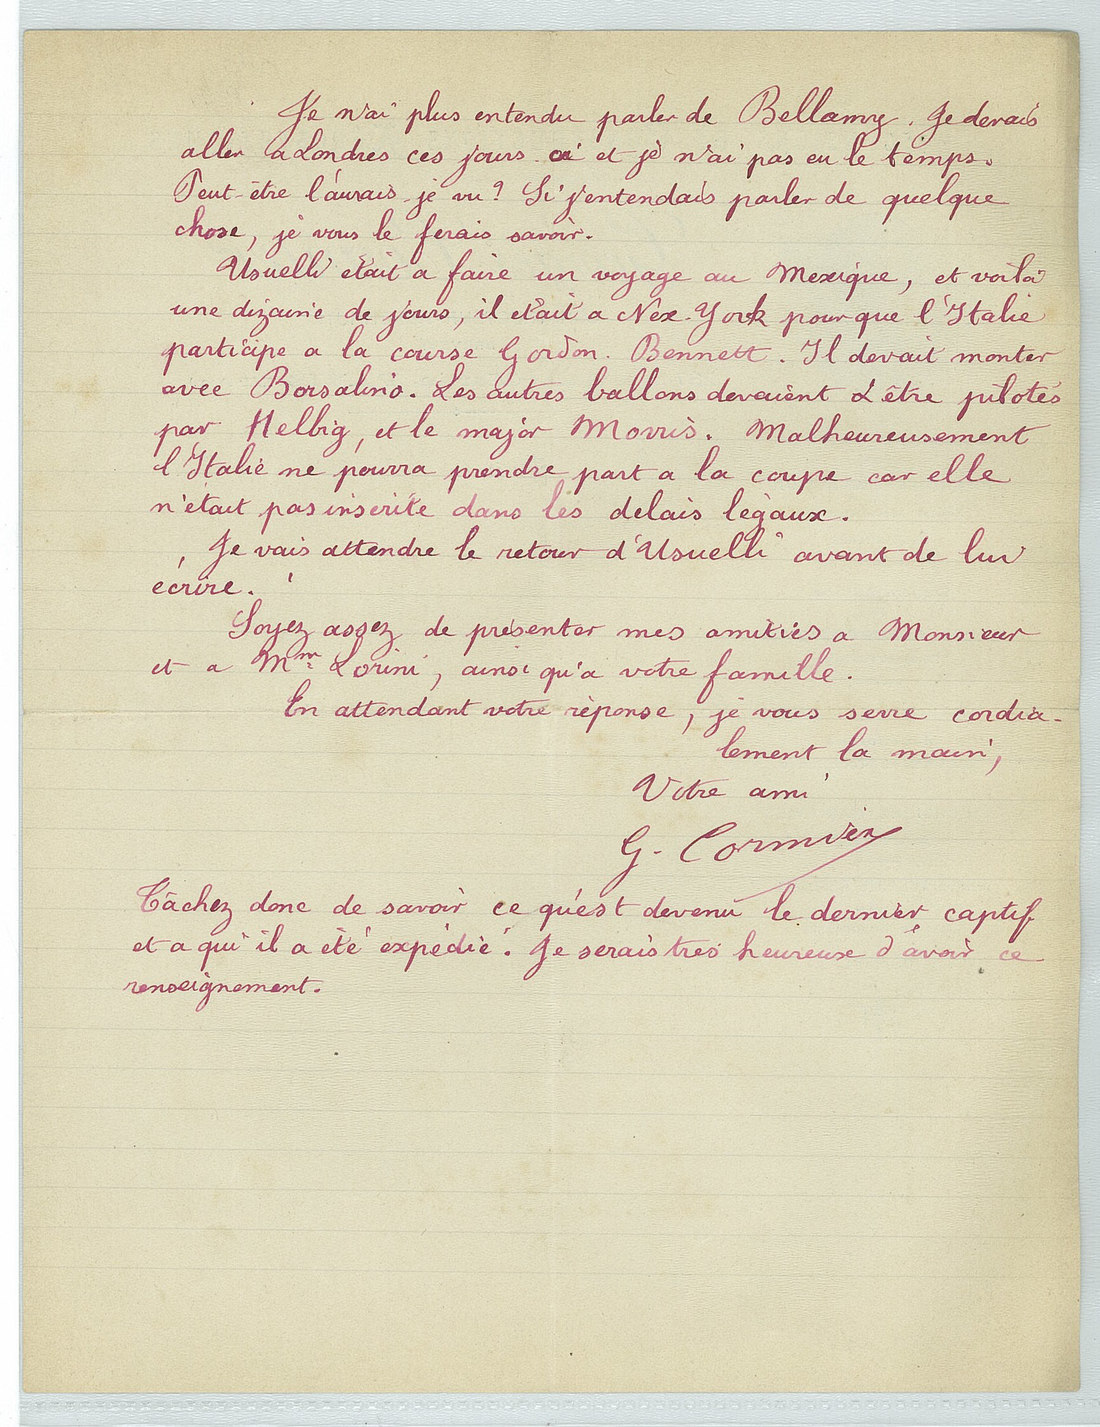 Je n'ai plus entendu parler de Bellamy. Je devais
aller a Londres ces jours ci et je n'ai pas eu le temps.
Peut-être l'aurais-je vu? Si j'entendais parler de quelque
chose, je vous le ferais savoir.
Usuelli était a faire un voyage au Mexique, et voilà
une dizaine de jours, il était a Nex-York pour que l'Italie
participe a la course Gordon-Bennett. Il devait monter
avec Borsalino. Les autres ballons devaient d'être pilotés
par Helbig, et le major Morris. Malheureusement
l'Italie ne pourra prendre part a la coupe car elle
n'était pas inscrite dans les délais légaux.
Je vais attendre le retour d'Usuelli avant de lui
écrire.
Soyez assez de présenter mes amitiés a Monsieur
et a Mme Lorini, ainsi qu'a votre famille.
En attendant votre réponse, je vous serre cordia-
lement la main,
Votre ami
G. Cormier
Tâchez donc de savoir ce qu'est devenu le dernier captif
et a qui il a été expédié. Je serais très heureux d'avoir ce
renseignement.